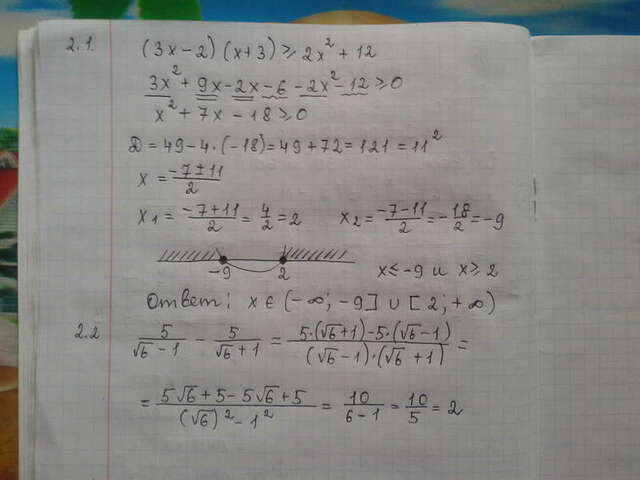 2.1. (3x-2)(x+3)≥2x²+12
3x²+9x-2x-6-2x²-12≥0
x²+7x-18≥0
D=49-4·(-18)=49+72=121=11²
x=(-7±11)/2
x₁=(-7+11)/2=4/2=2 x₂=(-7-11)/2=-18/2=-9
-9 2 x≤-9 и x≥2
Ответ: x∈(-∞;-9]∪[2;+∞)
2.2 5/(√6-1) - 5/(√6+1) = (5·(√6+1)-5·(√6-1))/((√6-1)·(√6+1)) =
= (5√6+5-5√6+5)/((√6)²-1²) = 10/(6-1) = 10/5 = 2